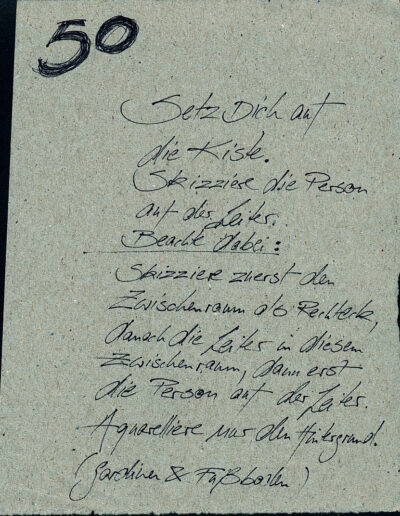 50
Setz Dich auf
die Kiste.
Skizziere die Person
auf der Leiter.
Beachte dabei:
Skizziere zuerst den
Zwischenraum als Rechteck,
danach die Leiter in diesem
Zwischenraum, dann erst
die Person auf der Leiter.
Aquarelliere nur den Hintergrund.
(Gardinen & Fußboden)